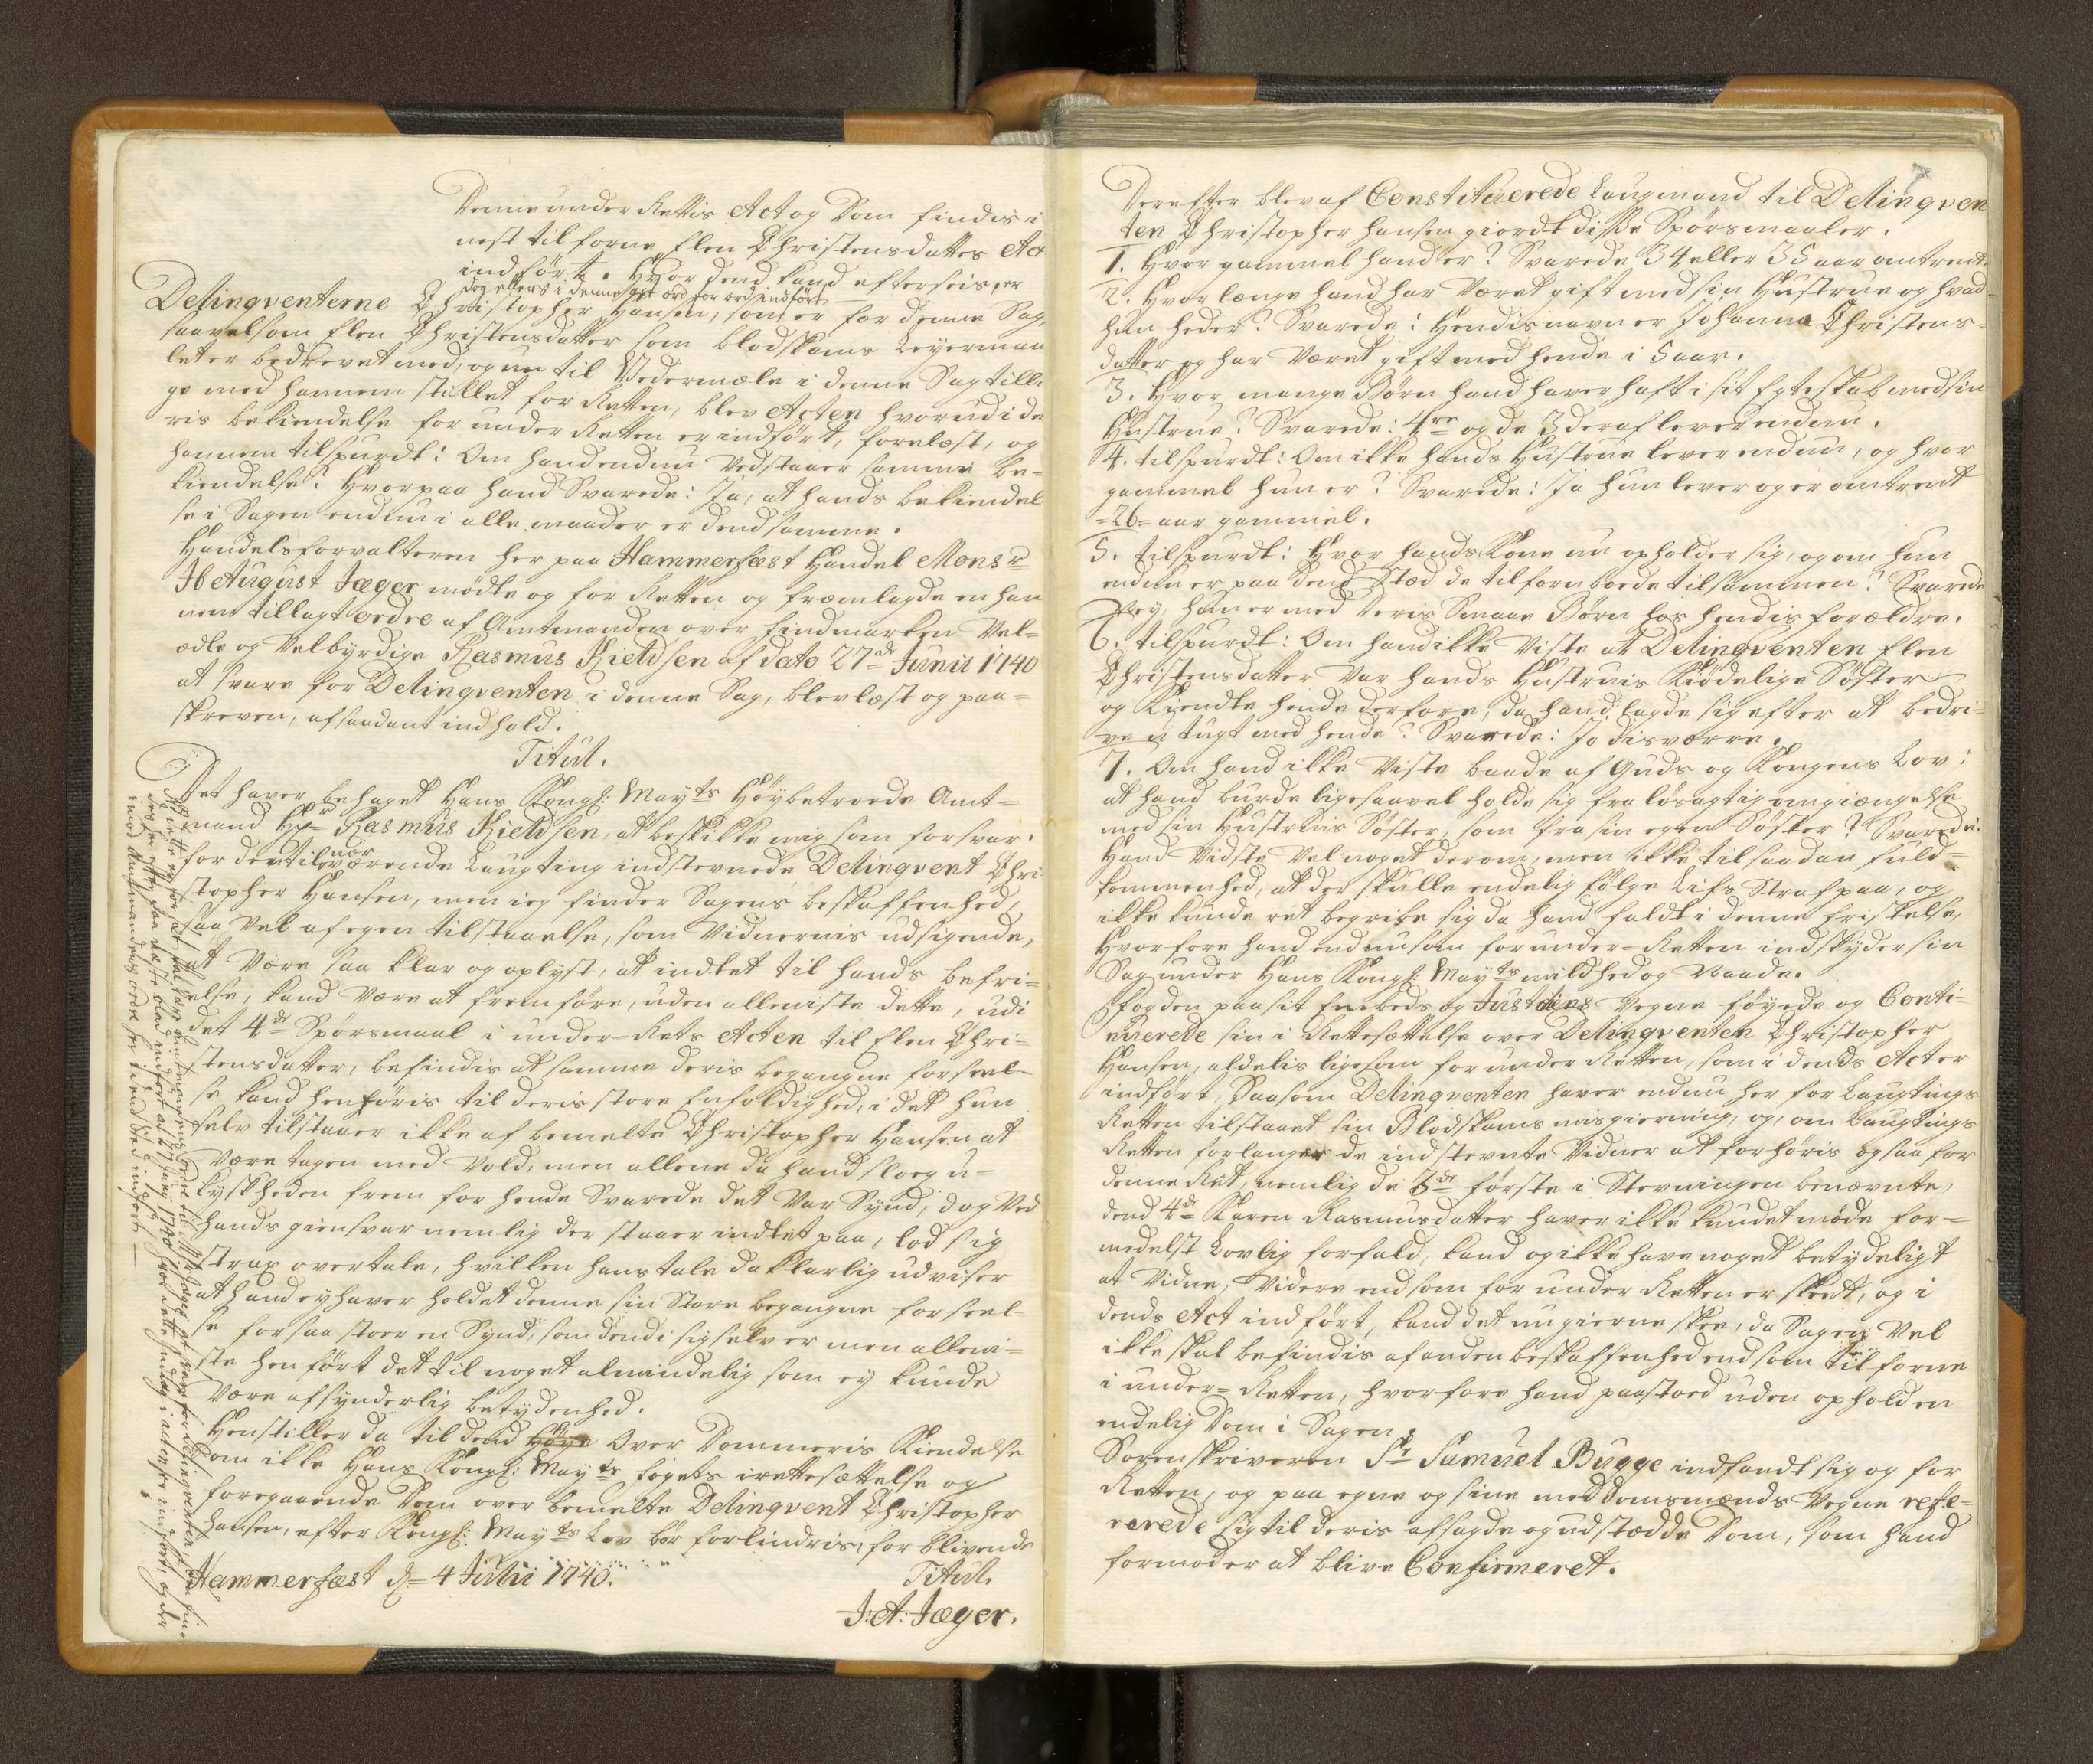 Denne under Rettis Act og Dom findis i
nest tilforne Elen Christensdatters Act
indført. Hvor dend kand efterseis, er
dog ellers i denne Act ord for ord indført
Delinqventerne Christopher Hansen, som er for denne Sag,
saavelsom Elen Christensdatter som blodskams Leyermaal
let er bedrevet med, og nu til Vedermæle i denne Sag tilli
ge med hannem stillet for Retten, blev Acten hvorudi de
ris bekiendelse for under Retten er indført, forelæst, og
hannem tilspurdt: Om hand endnu Vedstaaer samme be-
kiendelse? Hvorpaa hand Svarede: Ja, at hands bekiendel
se i Sagen endnu i alle maader er dend samme.
Handelsforvalteren her paa Hammerfæst Handel Monsr
Jb August Jæger mødte og for Retten og fremlagde en han
nem tillagt ordre af Amtmanden over Findmarken Vel-
ædle og Velbyrdige Rasmus Kieldsen af dato 27de Junii 1740
at svare for Delinqventen i denne Sag, blev læst og paa-
skreven, af saadant indhold.
Titul.
Det haver behaget Hans Kongl: Mayts Høybetroede Amt-
mand Hr Rasmus Kieldsen, at beskikke mig som forsvar.
for den tilværende Laugting indstevnede Delinqvent Chri
stopher Hansen, men ieg finder Sagens beskaffenhed,
saa Vel af egen tilstaaelse, som Vidnernis udsigende,
at Være saa klar og oplyst, at indtet til hands befri-
else, kand Være at fremføre, uden alleniste dette, udi
det 4de Spørsmaal i under-Rets Acten til Elen Chri-
stensdatter, befindis at samme deris begangne forseel-
se kand henføris til deris store Enfoldighed, i det hun
selv tilstaaer ikke af bemelte Christopher Hansen at
Være tagen med Vold, men allene da hand sloeg u-
kyskheden frem for hende Svarede det Var Synd, dog Ved
hands giensvar nemlig der staaer indtet paa, lod sig
strax overtale, hvilken hans tale da klarlig udviser
at hand ey haver holdet denne sin Store begangne forseel-
se for saa stoer en Synd, som dend i sig selv er men alleni-
ste henført det til noget almindelig som ey kunde
Være af synderlig betydenhed.
Henstiller da til dend Over Dommeris Kiendelse
om ikke Hans Kongl: Mayts fogets irettesættelse og
foregaaende Dom over bemelte Delinqvent Christopher
Hansen, efter Kongl: Mayts Lov bør forlindris, forblivende
Hammerfæst d= 4 Julii 1740. Titul.
J: A: Jæger.
Derefter blev af Constituerede Laugmand til Delinqven
ten Christopher Hansen giordt disse Spørsmaaler.
1. Hvor gammel hand er? Svarede 34 eller 35 aar omtrent.
2. Hvor længe hand har Været gift med sin Hustrue og hvad
hun heder? Svarede: Hendis navn er Johanna Christens-
datter og har Været gift med hende i 5 aar.
3. Hvor mange Børn hand haver haft i sit Egteskab med sin
Hustrue? Svarede: 4re og de 3 deraf lever endnu.
4. tilspurdt: Om ikke hands Hustrue lever endnu, og hvor
gammel hun er? Svarede: Ja hun lever og er omtrent
-26- aar gammel.
5. tilspurdt: Hvor hands Kone nu opholder sig, og om hun
endnu er paa dend Stæd de tilforn boede tilsammen? Svarede
Ney, hun er med deris Smaae Børn hos hendis forældre.
6. tilspurdt: Om hand ikke Viste at Delinqventen Elen
Christensdatter Var hands Hustruis Kiødelige Søster
og Kiendte hende derfore, da hand lagde sig efter at bedri-
ve u tugt med hende? Svarede: Jo disværre.
7. Om hand ikke Viste baade af Guds og Kongens Lov:
at hand burde ligesaavel holde sig fra løsagtig omgiængelse
med sin Hustruis Søster, som fra sin egen Søster? Svarede:
Hand Vidste Vel noget derom, men ikke til saadan fuld-
kommenhed, at der skulle endelig følge Lifs Straf paa, og
ikke kunde ret begribe sig da hand faldt i denne fristelse,
Hvorfore hand endnu som for under-Retten indskyder sin
Sag under Hans Kongl: Mayts mildhed og Naade.
Fogden paa sit Embeds og Justitiens Vegne føyede og Conti-
nuerede sin i Rettesættelse over Delinqventen Christopher
Hansen, aldelis ligesom for under Retten, som i dends Act er
indført, Saasom Delinqventen haver endnu her for Laugtings
Retten tilstaaet sin Blodskams misgierning, og, om Laugtings
Retten forlanger de indstevnte Vidner at forhøris og saa for
denne Ret, nemlig de 3de første i Stevningen benævnte,
dend 4de Karen Rasmusdatter haver ikke kundet møde for-
medelst Lovlig forfald, kand og ikke have noget betydeligt
at Vidne, Videre end som for under Retten er skeet, og i
dends Act indført, kand det nu gierne skee, da Sagen Vel
ikke skal befindis af anden beskaffenhed end som tilforne
i under-Retten, hvorfore hand paastoed uden ophold en
endelig Dom i Sagen.
Sorenskriveren Sr Samuel Bugge indfandt sig og for
Retten, og paa egne og sine meddomsmænds Vegne refe-
rerede sig til deris afsagde og udstædde Dom, som hand
formoder at blive Confirmeret.